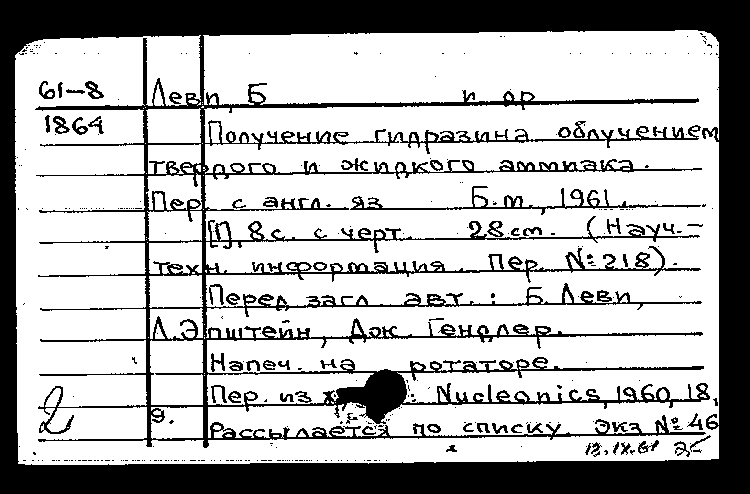 61-8 Леви, Б и др
1864 Получение гидразина облучением
твердого и жидкого аммиака.
Пер. с англ. яз Б.м., 1961.
[1], 8 с. с черт. 28 cm. (Науч.-
техн. информация. Пер. №218).
Перед загл. авт.: Б. Леви,
Л. Эпштейн, Дж. Гендлер.
Напеч. на ротаторе.
Пер. из : Nucleonics, 1960, 18,
2 9.
Рассылается по списку. Экз №46
12.IX.61 2-